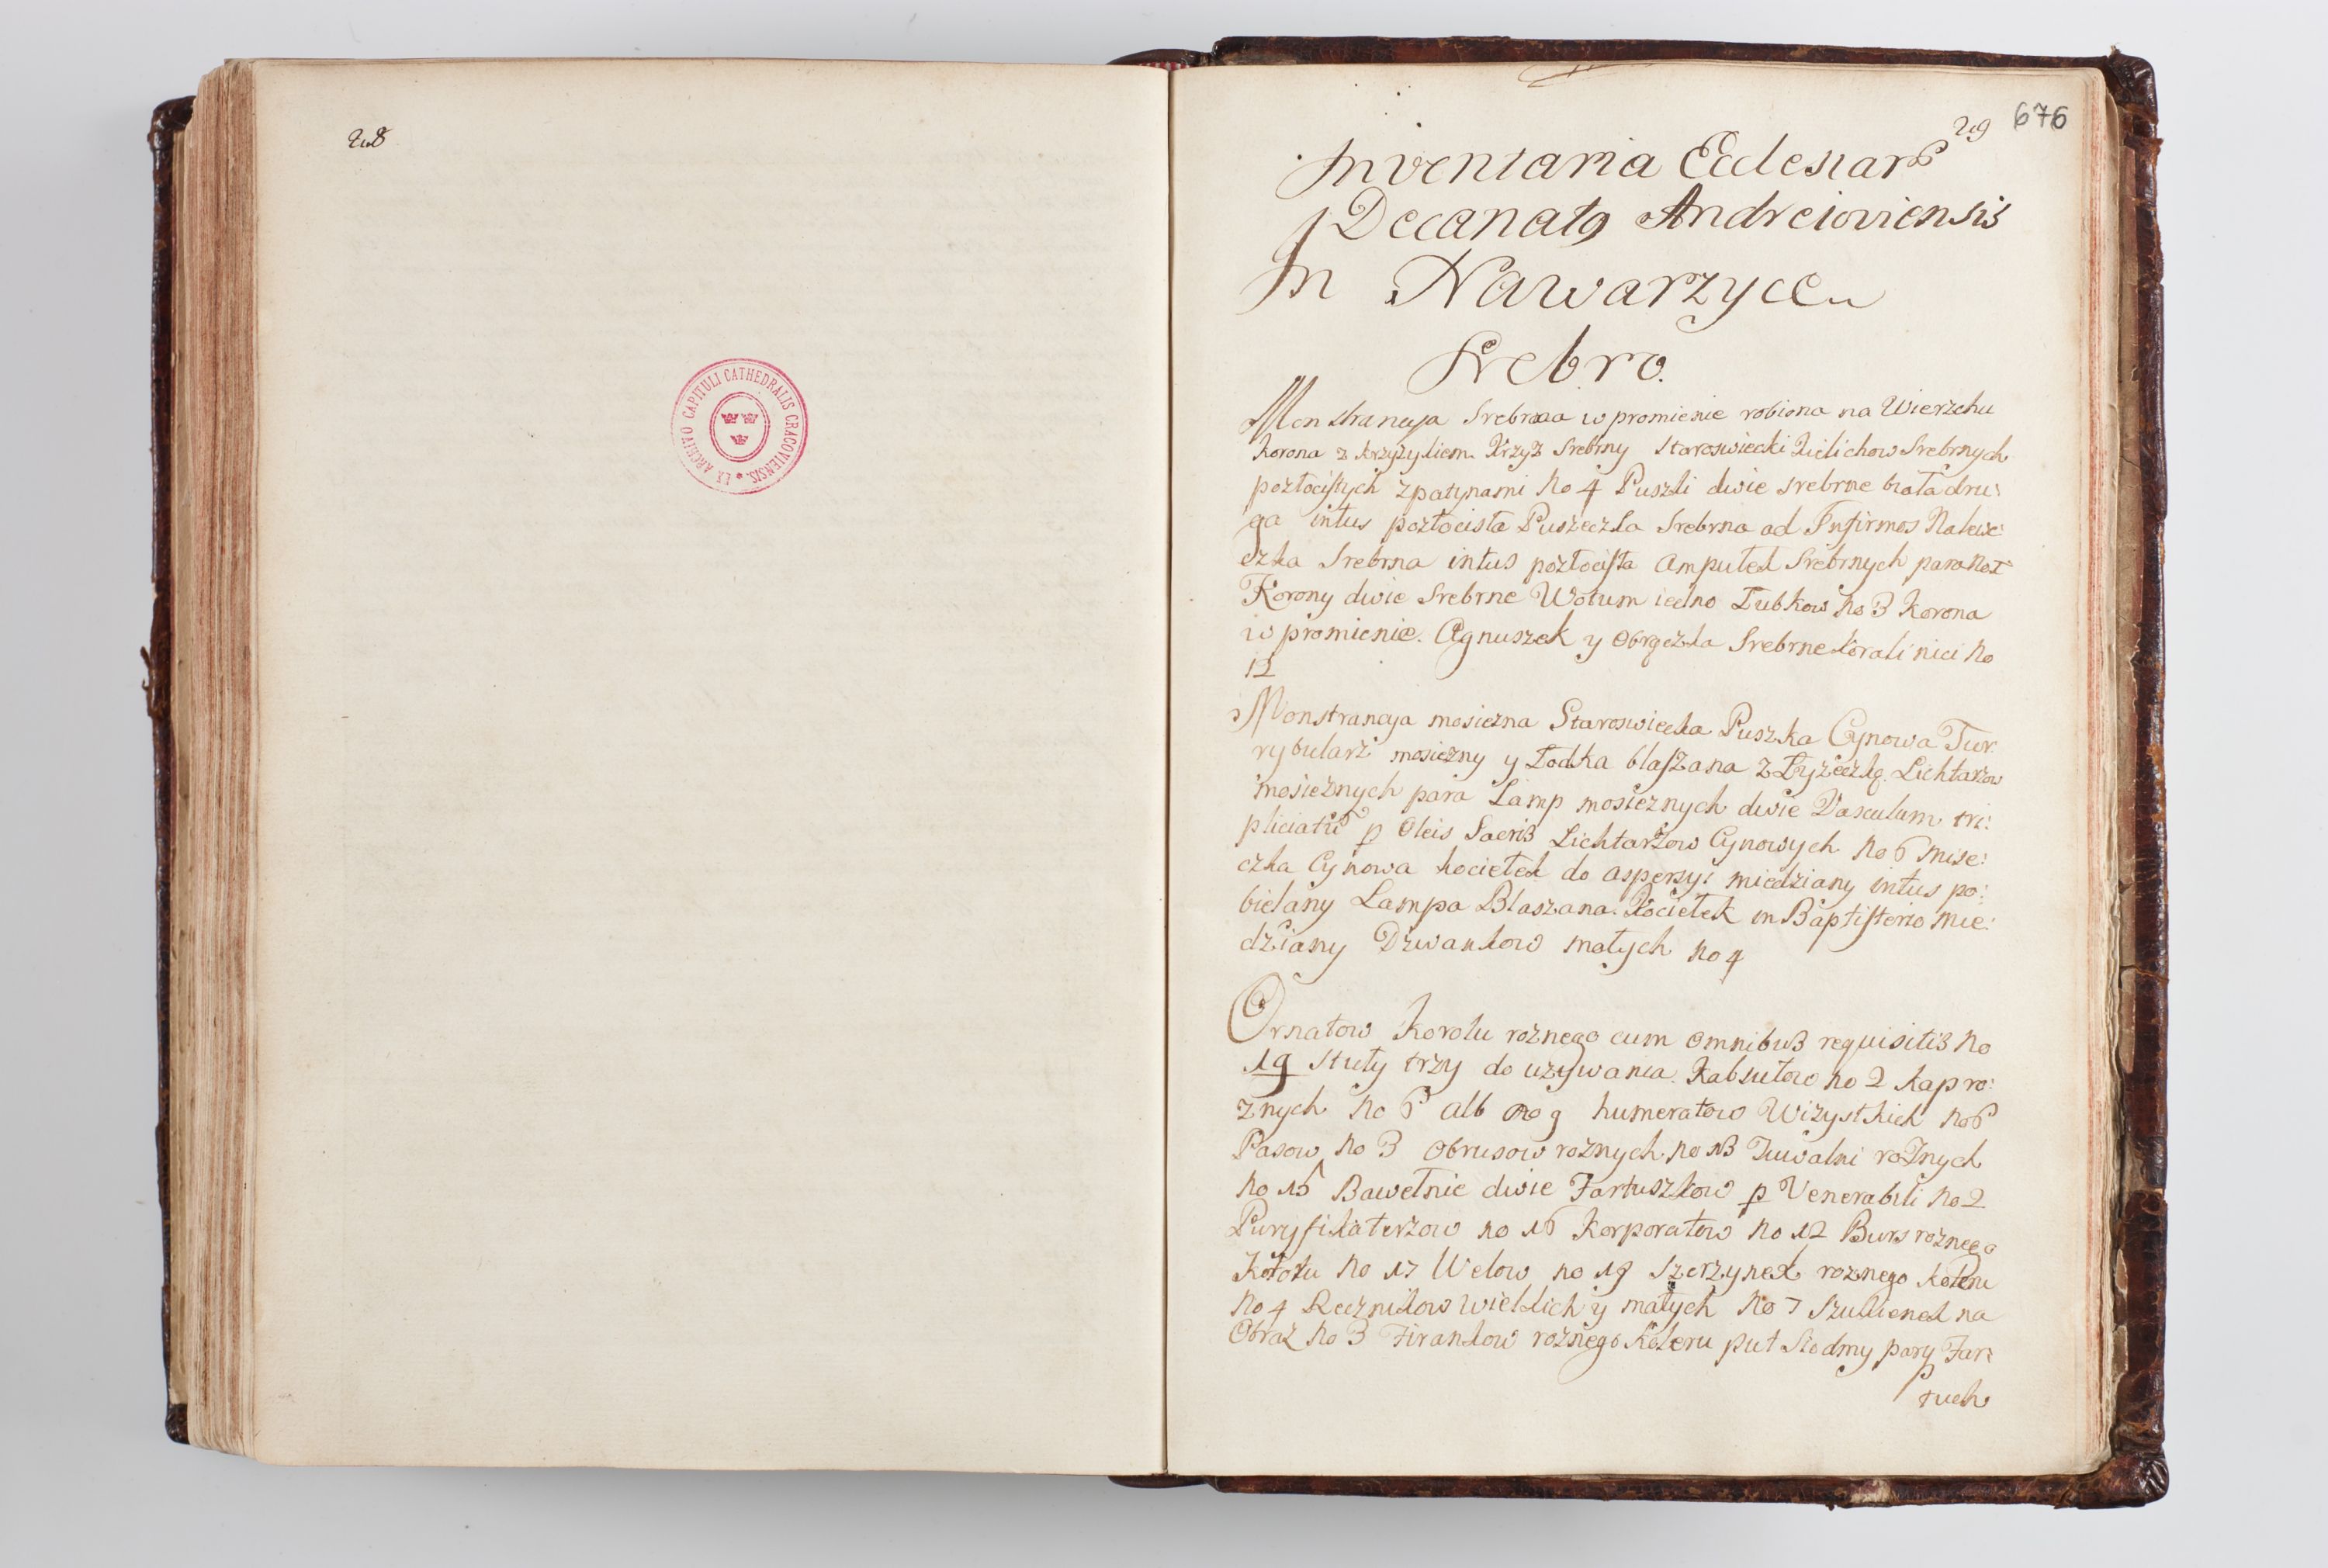 218
EX ARCHIVO CAPITULI CATHEDRALIS CRACOVIENSIS.
219 676
Inventaria Ecclesiar
Decanatq Andreioviensis
In Nawarzyce
Srebro.
Monstrancya Srebrna w promienie robiona na Wierzchu
Korona z krzyżykiem. Krzyż Srebrny Staroswiecki Kielichow Srebrnych
pozłocistych z patynami No 4 Puszki dwie srebrne biała dru:
ga intus pozłocista Puszeczka Srebrna ad Infirmos Nalewe:
czka Srebrna intus pozłocista Ampułek Srebrnych para No 1
Korony dwie Srebrne Wotum iedno Łubkow No 3 Korona
w promienie. Agnuszek y Obrączka Srebrne korali nici No
12
Monstrancya mosiezna Staroswiecka Puszka Cynowa Tur:
rybularz mosiezny y Łodka blaszana z Łyżeczką. Lichtarzow
mosieżnych para Lamp mosieznych dwie Vasculum tri:
pliciatu p Oleis Sacris Lichtarzow Cynowych No 6 mise:
czka Cynowa kociełek do aspersyi miedziany intus po:
bielany Lampa Blaszana. Kociełek in Baptisterio mie:
dziany Dzwonkow małych No 4
Ornatow Korolu roznego cum omnibus requisitis No
19 Stuły trzy do uzywania. Kabsułow no 2 kap ro:
znych No 6 alb no 9 humerałow Wszystkich No 6
Pasow No 3 Obrusow roznych No 13 Tuwalni rożnych
No 15 Bawełnic dwie Fartuszkow p Venerabili No 2
Puryfikaterzow no 16 Korporałow No 12 Burs roznego
Koloru No 17 Welow no 19 Szerzynek roznego Koloru
No 4 Ręcznikow wielkich y małych No 7 Szukienek na
Obraz No 3 Firankow roznego Koloru puł Siodmy pary Far:
tuch